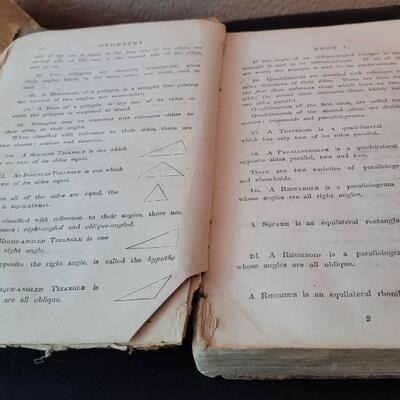 GEOMETRY
side of the one is equal to the first side of the other, the
second side of the one, to the second side of the other,
and so on.
22. Two polygons are mutually equiangular when
their angles taken in the same order, are equal, each to
each.
23. A DIAGONAL of a polygon is a straight line joining
the vertices of two angles not consecutive.
24. A BASE of a polygon is any one of its sides on
which the polygon is supposed to stand.
25. Triangles may be classified with reference either to
their sides, or their angles.
When classified with reference to their sides, there are
two classes: scalene and isosceles.
1st. A SCALENE TRIANGLE is one which
no two of its sides equal.
2d. An ISOSCELES TRIANGLE is one which
two of its sides equal.
When all of the sides are equal, the
is EQUILATERAL.
classified with reference to their angles, there are
right-angled and oblique-angled.
RIGHT-ANGLED TRIANGLE is one
right angle.
opposite the right angle, is called the hypothe
OBLIQUE-ANGLED TRIANGLE is
are all oblique.
BOOK I.
If one angle of an oblique-angled triangle is
triangle is said to be
are acute, the triangle is said to be
26. Quadrilaterals are classified with reference
directions of their sides. There are
the first class
sides parallel.
Quadrilaterals of the first class, are called
Quadrilaterals of the second class, are
species: trapezoids and parallelograms.
27. A TRAPEZOID is a quadrilateral
which has only two of its sides parallel.
28. A PARALLELOGRAM is a quadrilateral
opposite sides parallel, two and two.
There are two varieties of parallelograms
and rhomboids.
1st. A RECTANGLE is a parallelogram
whose angles are all right angles.
A SQUARE is an equilateral rectangle
2d. A RHOMBOID is a parallelogram
whose angles are all oblique.
A RHOMBUS is an equilateral rhomb
2